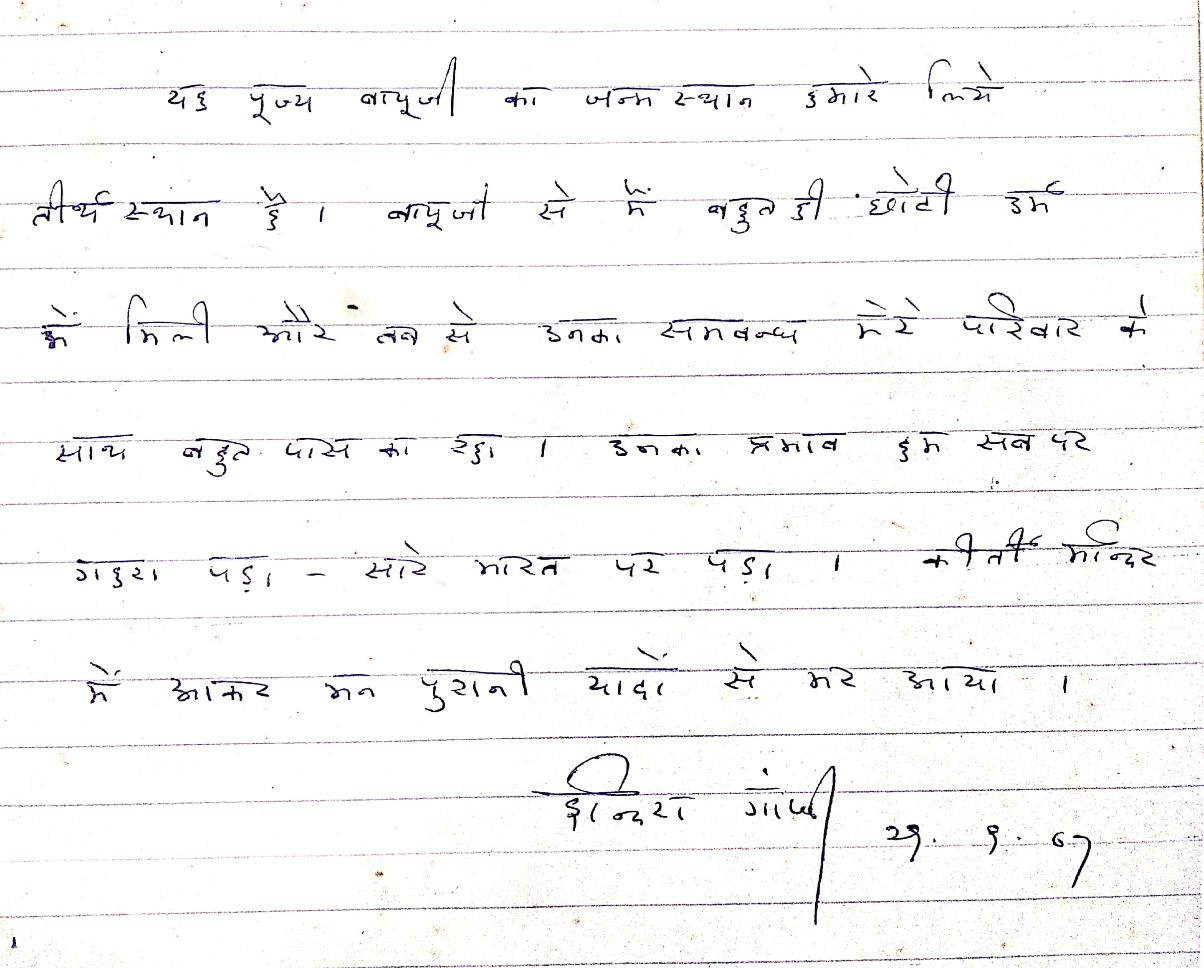 यह पूज्य बापूजी का जन्म स्थान हमारे लिये
तीर्थ स्थान है । बापूजी से मैं बहुत ही छोटी उर्म
में मिली और तब से उनका समबन्ध मेरे परिवार के
साथ बहुत पास का रहा । उनका प्रभाव हम सब पर
गहरा पड़ा – सारे भारत पर पड़ा । कीर्ती मन्दिर
में आकर मन पुरानी यादों से भर आया ।
इन्दिरा गांधी
२९. ९. ६७